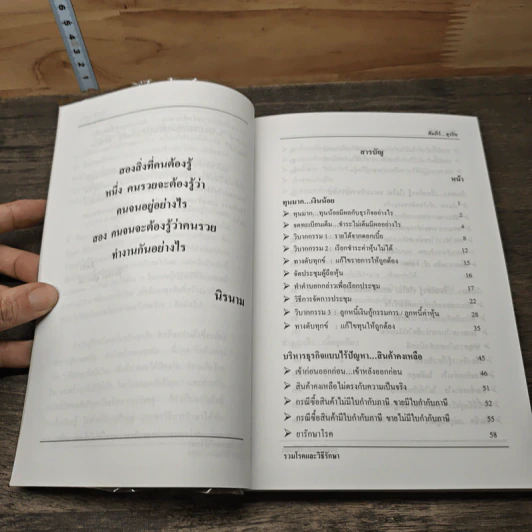 สองสิ่งที่คนต้องรู้
หนึ่ง คนรวยจะต้องรู้ว่า
คนจนอยู่อย่างไร
สอง คนจนจะต้องรู้ว่าคนรวย
ทำงานกันอย่างไร
นิรนาม
คัมภีร์...ธุรกิจ
สารบัญ
หน้า
ทุนมาก...เงินน้อย 1
➤ ทุนมาก...ทุนน้อยมีผลกับธุรกิจอย่างไร 2
➤ จดทะเบียนเต็ม...ชำระไม่เต็มมีผลอย่างไร 4
➤ วิบากกรรม 1 : รายได้จากดอกเบี้ย 8
➤ วิบากกรรม 2 : เรียกชำระค่าหุ้นไม่ได้ 12
➤ ทางดับทุกข์ : แก้ไขรายการให้ถูกต้อง 15
➤ จัดประชุมผู้ถือหุ้น 16
➤ ทำคำบอกกล่าวเพื่อเรียกประชุม 17
➤ วิธีการจัดการประชุม 22
➤ วิบากกรรม 3 : ลูกหนี้เงินกู้กรรมการ / ลูกหนี้ค่าหุ้น 28
➤ ทางดับทุกข์ : แก้ไขทุนให้ถูกต้อง 35
บริหารธุรกิจแบบไร้ปัญหา...สินค้าคงเหลือ 45
➤ เข้าก่อนออกก่อน...เข้าหลังออกก่อน 46
➤ สินค้าคงเหลือไม่ตรงกับความเป็นจริง 51
➤ กรณีซื้อสินค้าไม่มีใบกำกับภาษี ขายมีใบกำกับภาษี 52
➤ กรณีซื้อสินค้ามีใบกำกับภาษี ขายไม่มีใบกำกับภาษี 55
➤ ยารักษาโรค 58
รวมโรคและวิธีรักษา
6
5
4
3
2
1